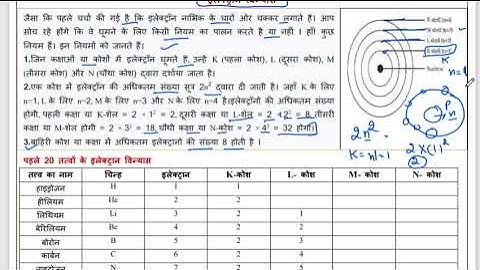 जैसा कि पहले चर्चा की गई है कि इलेक्ट्रॉन नाभिक के चारों ओर चक्कर लगाते हैं। आप
सोच रहे होंगे कि वे घूमने के लिए किसी नियम का पालन करते है या नहीं ! हाँ! कुछ
नियम हैं। इन नियमों को जानते हैं।
1.जिन कक्षाओं या कोशों में इलेक्ट्रॉन घूमते हैं, उन्हें K (पहला कोश), L (दूसरा कोश), M
(तीसरा कोश) और N (चौथा कोश) द्वारा दर्शाया जाता है।
2.एक कोश में इलेक्ट्रॉन की अधिकतम संख्या सूत्र 2n² द्वारा दी जाती है। जहाँ K के लिए
n=1, L के लिए n=2, M के लिए n=3 और N के लिए n=4 है।इलेक्ट्रॉनों की अधिकतम संख्या
होगी, पहली कक्षा या K-शेल = 2 × 1² = 2, दूसरी कक्षा या L-शेल = 2 × 2² = 8, तीसरी
कक्षा या M-शेल होगी = 2 × 3² = 18, चौथी कक्षा या N-कोश = 2 × 4² = 32 होगी।
3.बाहिरी कोश या कक्षा में अधिकतम इलेक्ट्रानो की संख्या 8 होती है ।
K
n=1
P
n
2n².
K= n=1
2×(1)²
2
पहले 20 तत्वों के इलेक्ट्रान विन्यास
तत्व का नाम चिन्ह इलेक्ट्रान K-कोश L- कोश M- कोश N- कोश
हाइड्रोजन H 1 1
हीलियम He 2 2
लिथियम Li 3 2 1
बेरिलियम Be 4 2 2
बोरोन B 5 2 3
कार्बन C 6 2 4
नाइट्रोजन N 7 2 5